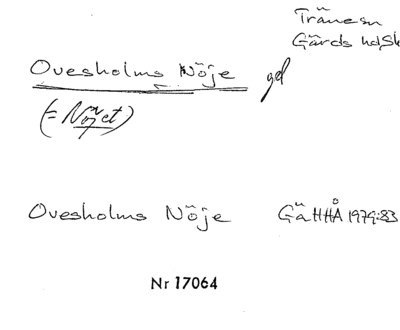 Träne sn
Gärds hd Sk
Ovesholms Nöje gd
(= Nöjet)
Ovesholms Nöje GäHHÅ 1979:83
Nr 17064